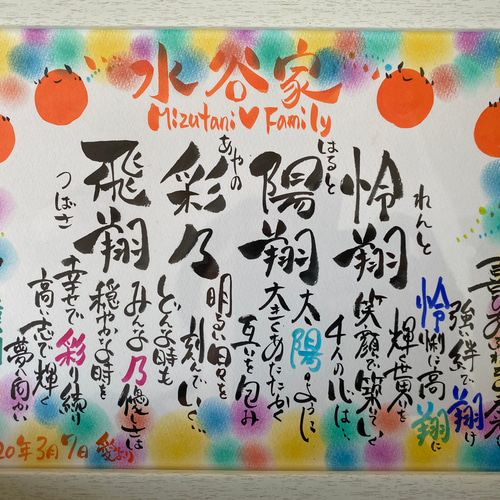 水谷家
Mizutani Family
れんと
怜翔
はると
陽翔
あやの
彩乃
つばさ
飛翔
強い絆で翔け
怜悧に高翔に
輝く世界を
笑顔で築いていく
4人の心は…
太陽のように
大きくあたたかく
互いを包み
明るい日々を
刻んでいく…
どんな時も
みんな乃優しさは
穏やかな時を
幸せで彩り続け
高い志で輝く
夢へ向かい
20年3月7日